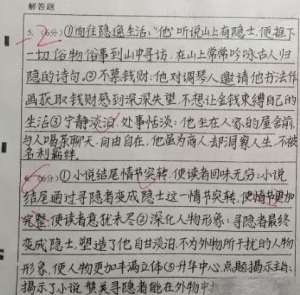 解答题
5.(6分)①向往隐逸生活:"他"听说山上有隐士,便抛下
一切俗物俗事到山中寻访,在山上常常吟咏古人归
隐的诗句。②不慕钱财:他对调琴人邀请他书法作
画获取钱财感到深深失望,不想让金钱束缚自己的
生活③宁静淡泊 处事恬淡:他坐在人家的屋舍前,
与人喝茶聊天,自由自在,他虽为商人却洞察人生,不被
名利羁绊。
6.(6分)①小说结尾情节突转,使读者回味无穷:小说
结尾通过寻隐者变成隐士这一情节突转,使情节更加
完整,使读者意犹未尽②深化人物形象:寻隐者最终
变成隐士,塑造了他自甘淡泊,不为外物所干扰的人物
形象,使人物更加丰满立体③升华中心,点题,揭示主旨:
揭示了小说 赞美寻隐者能在外物中